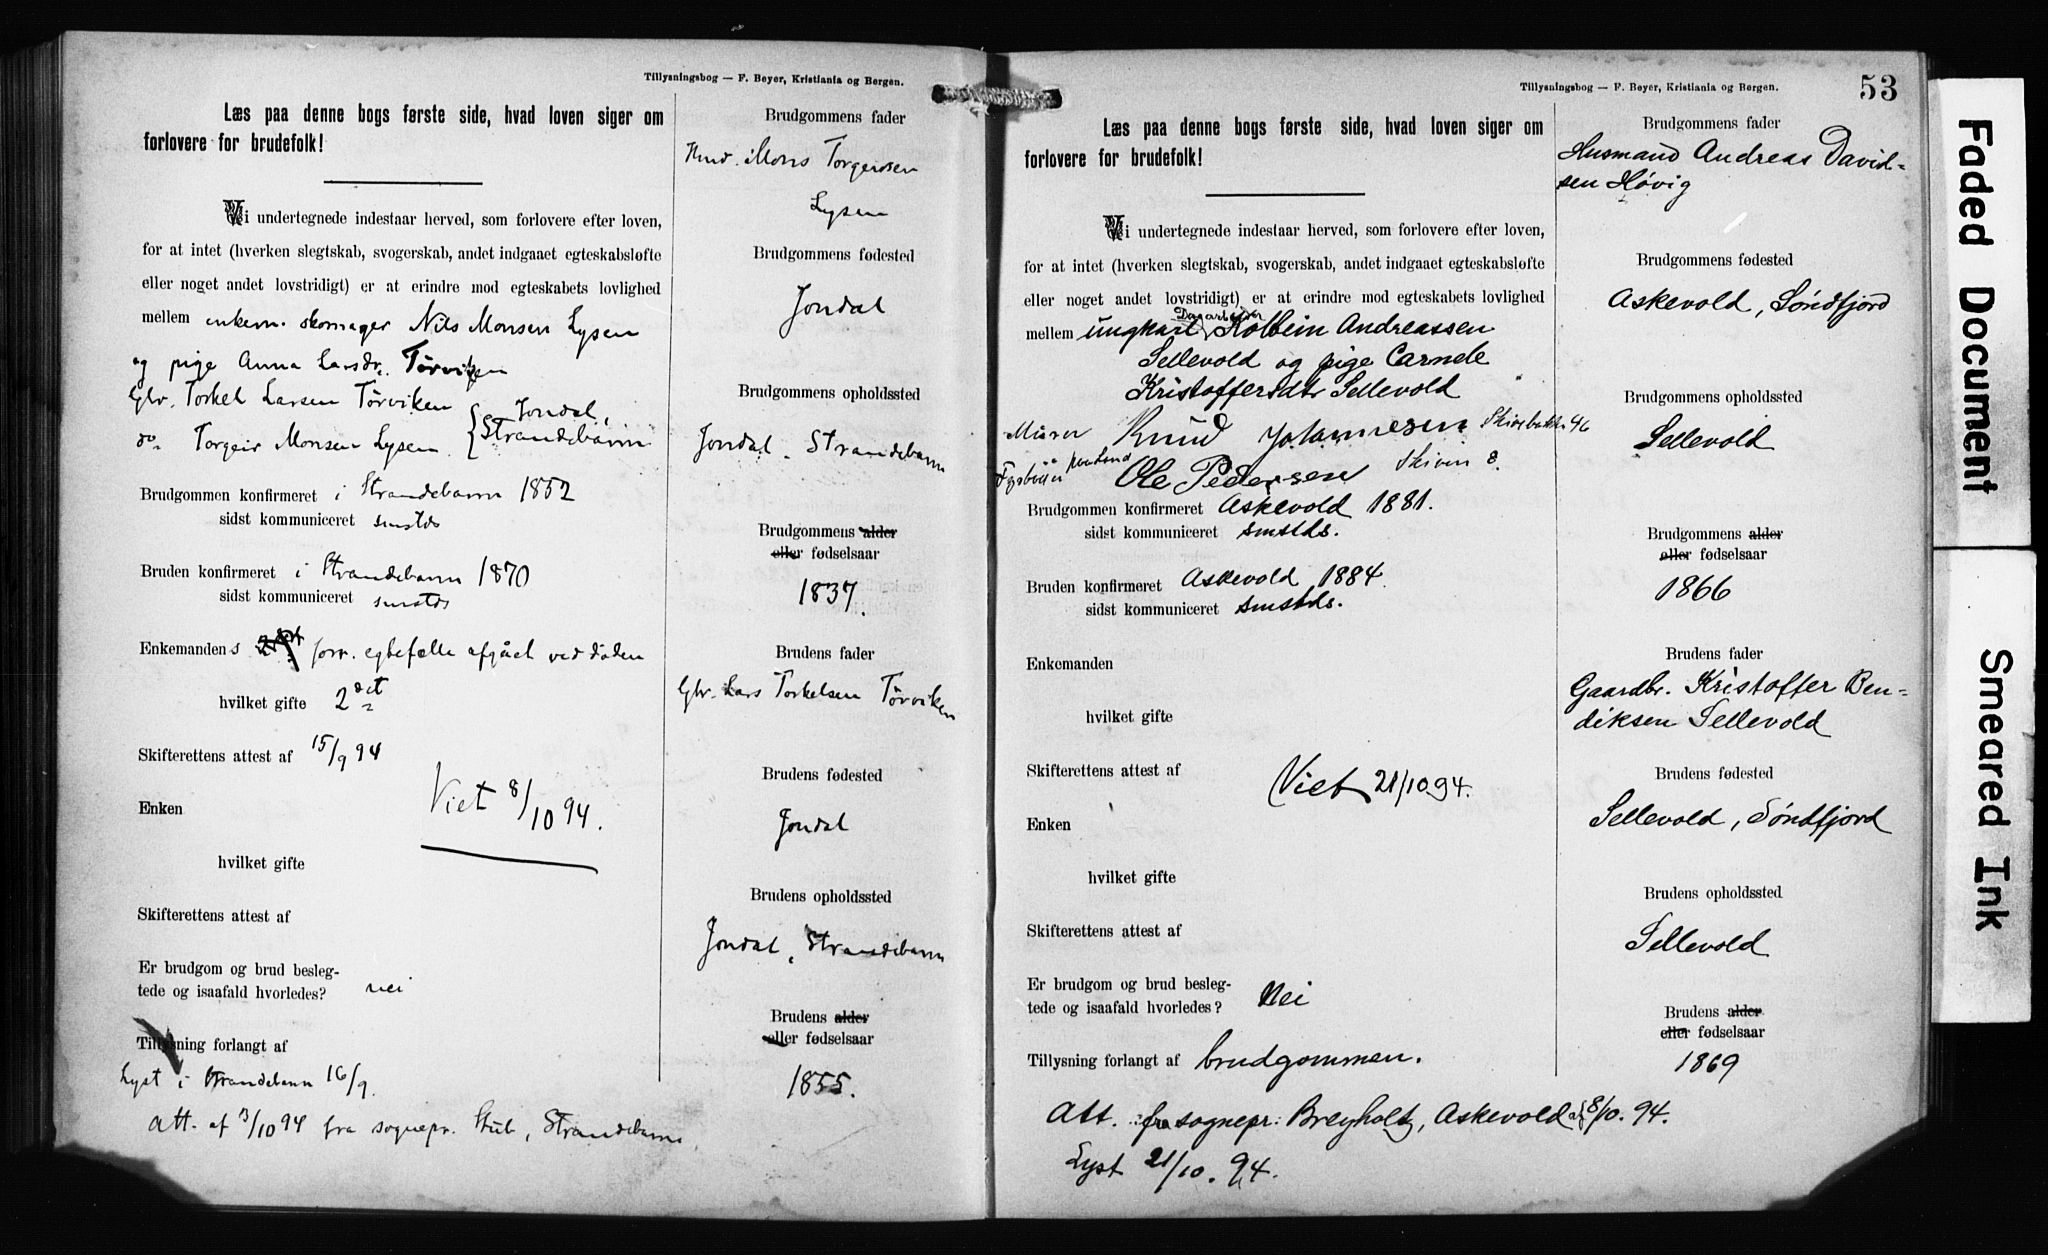 Tillysningsbog — F. Beyer, Kristiania og Bergen.
Læs paa denne bogs første side, hvad loven siger om
forlovere for brudefolk!
Vi undertegnede indestaar herved, som forlovere efter loven,
for at intet (hverken slegtskab, svogerskab, andet indgaaet egteskabsløfte
eller noget andet lovstridigt) er at erindre mod egteskabets lovlighed
mellem enkem. skomager Nils Monsen Lysen
og pige Anna Larsdr. Tørviken
Gbr. Torkel Larsen Tørviken
do Torgeir Monsen Lysen { Jondal, Strandebarm
Brudgommen konfirmeret i Strandebarm 1852
sidst kommuniceret smstds
Bruden konfirmeret i Strandebarm 1870
sidst kommuniceret smstds
Enkemandens forr. egtefælle afgået ved døden
hvilket gifte 2det
Skifterettens attest af 15/9 94
Viet 8/10 94.
Enken
hvilket gifte
Skifterettens attest af
Er brudgom og brud besleg-
tede og isaafald hvorledes? nei
Tillysning forlangt af
Lyst i Strandebarm 16/9.
Att. af 3/10 94 fra sognepr. Stub, Strandebarm
Brudgommens fader
Mons Torgersen
Lysen
Brudgommens fødested
Jondal
Brudgommens opholdssted
Jondal, Strandebarm
Brudgommens alder
eller fødselsaar
1837.
Brudens fader
Gbr. Lars Torkelsen Tørviken
Brudens fødested
Jondal
Brudens opholdssted
Jondal, Strandebarm
Brudens alder
eller fødselsaar
1855.
53
Tillysningsbog — F. Beyer, Kristiania og Bergen.
Læs paa denne bogs første side, hvad loven siger om
forlovere for brudefolk!
Vi undertegnede indestaar herved, som forlovere efter loven,
for at intet (hverken slegtskab, svogerskab, andet indgaaet egteskabsløfte
eller noget andet lovstridigt) er at erindre mod egteskabets lovlighed
Dagarbeider
mellem ungkarl Kolbein Andreassen
Sellevold og pige Carnele
Kristoffersdtr Sellevold
Murer Knud Johannesen 46
Ole Pedersen Skiven 8.
Brudgommen konfirmeret Askevold 1881.
sidst kommuniceret smstds.
Bruden konfirmeret Askevold 1884.
sidst kommuniceret smstds.
Enkemanden
hvilket gifte
Skifterettens attest af
Viet 21/10 94.
Enken
hvilket gifte
Skifterettens attest af
Er brudgom og brud besleg-
tede og isaafald hvorledes? Nei
Tillysning forlangt af brudgommen.
Att. fra sognepr. Breyholtz, Askevold af 8/10. 94.
Lyst 21/10. 94.
Brudgommens fader
Husmand Andreas David-
sen Høvig
Brudgommens fødested
Askevold, Søndfjord
Brudgommens opholdssted
Sellevold
Brudgommens alder
eller fødselsaar
1866
Brudens fader
Gaardbr. Kristoffer Ben-
diksen Sellevold
Brudens fødested
Sellevold, Søndfjord
Brudens opholdssted
Sellevold
Brudens alder
eller fødselsaar
1869
Faded Document
Smeared Ink